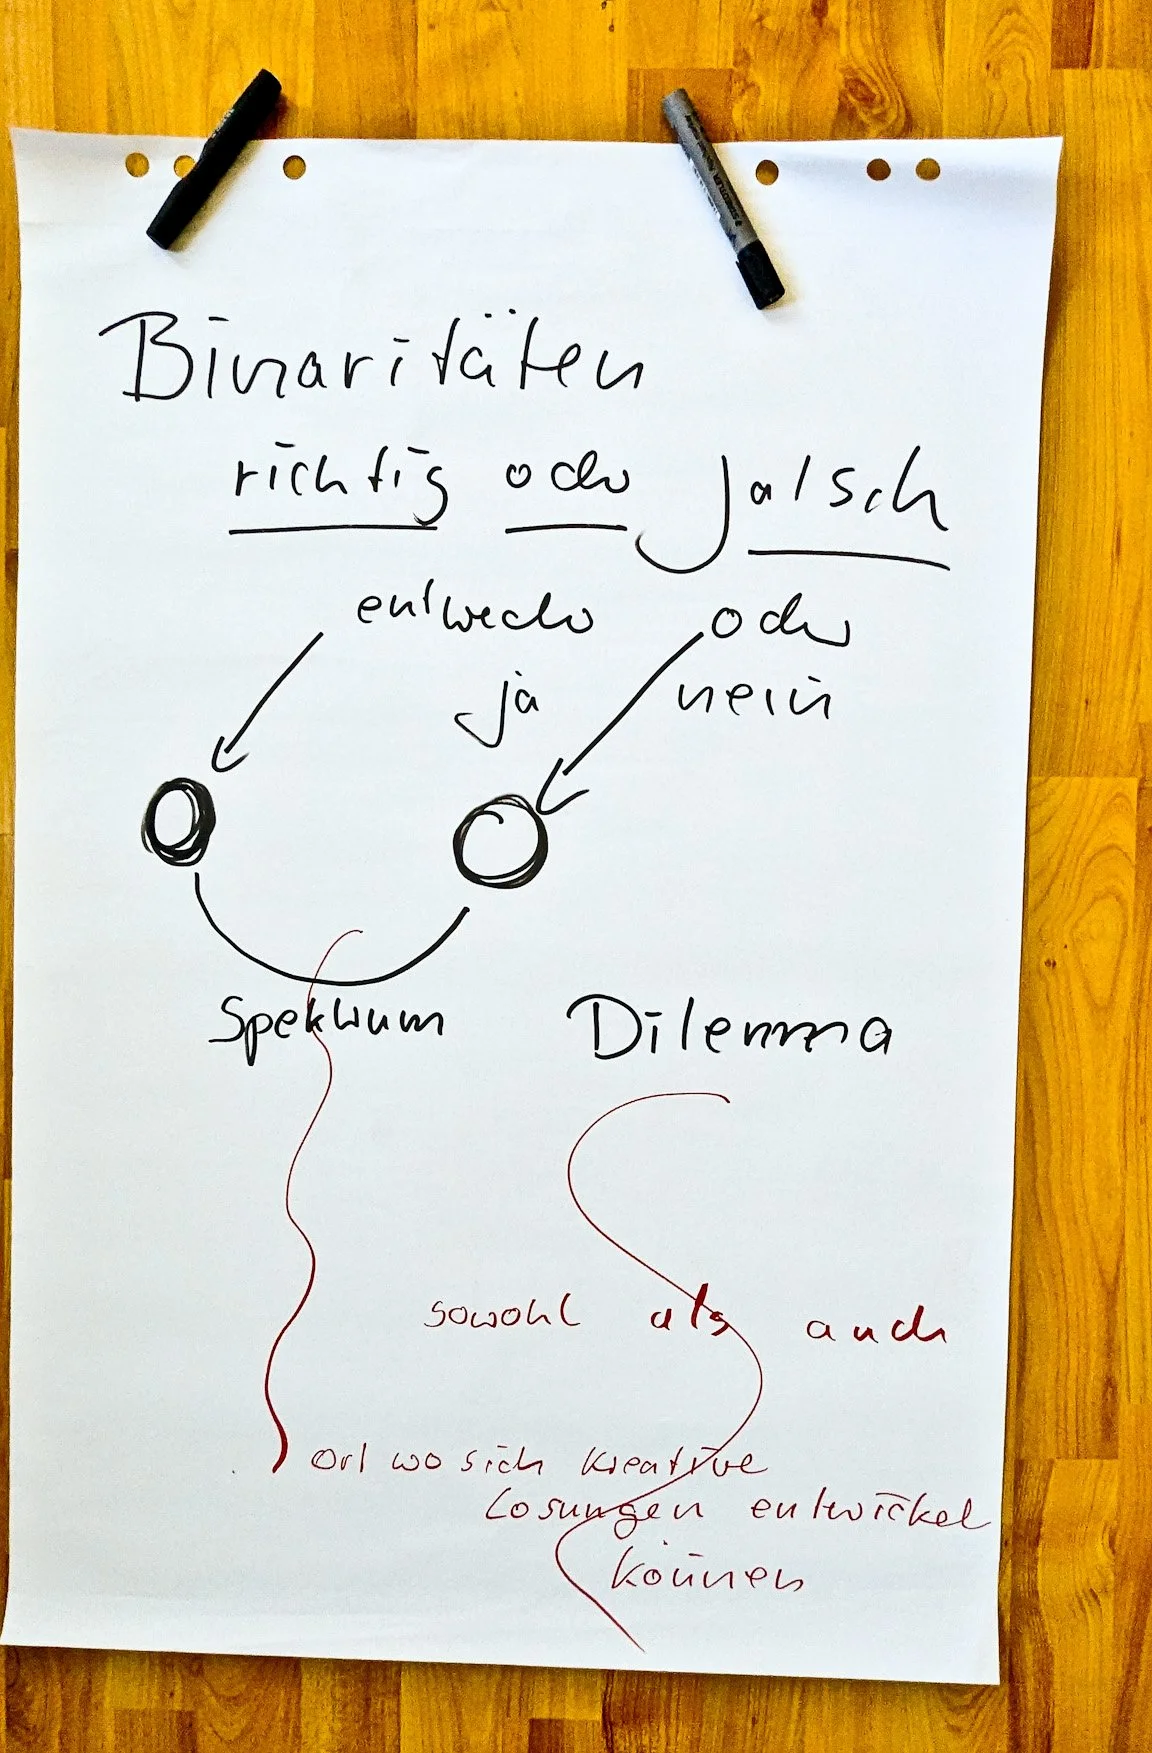 Binaritäten
richtig oder falsch
entweder oder
ja nein
Spektrum Dilemma
sowohl als auch
Ort wo sich kreative
Lösungen entwickel
können